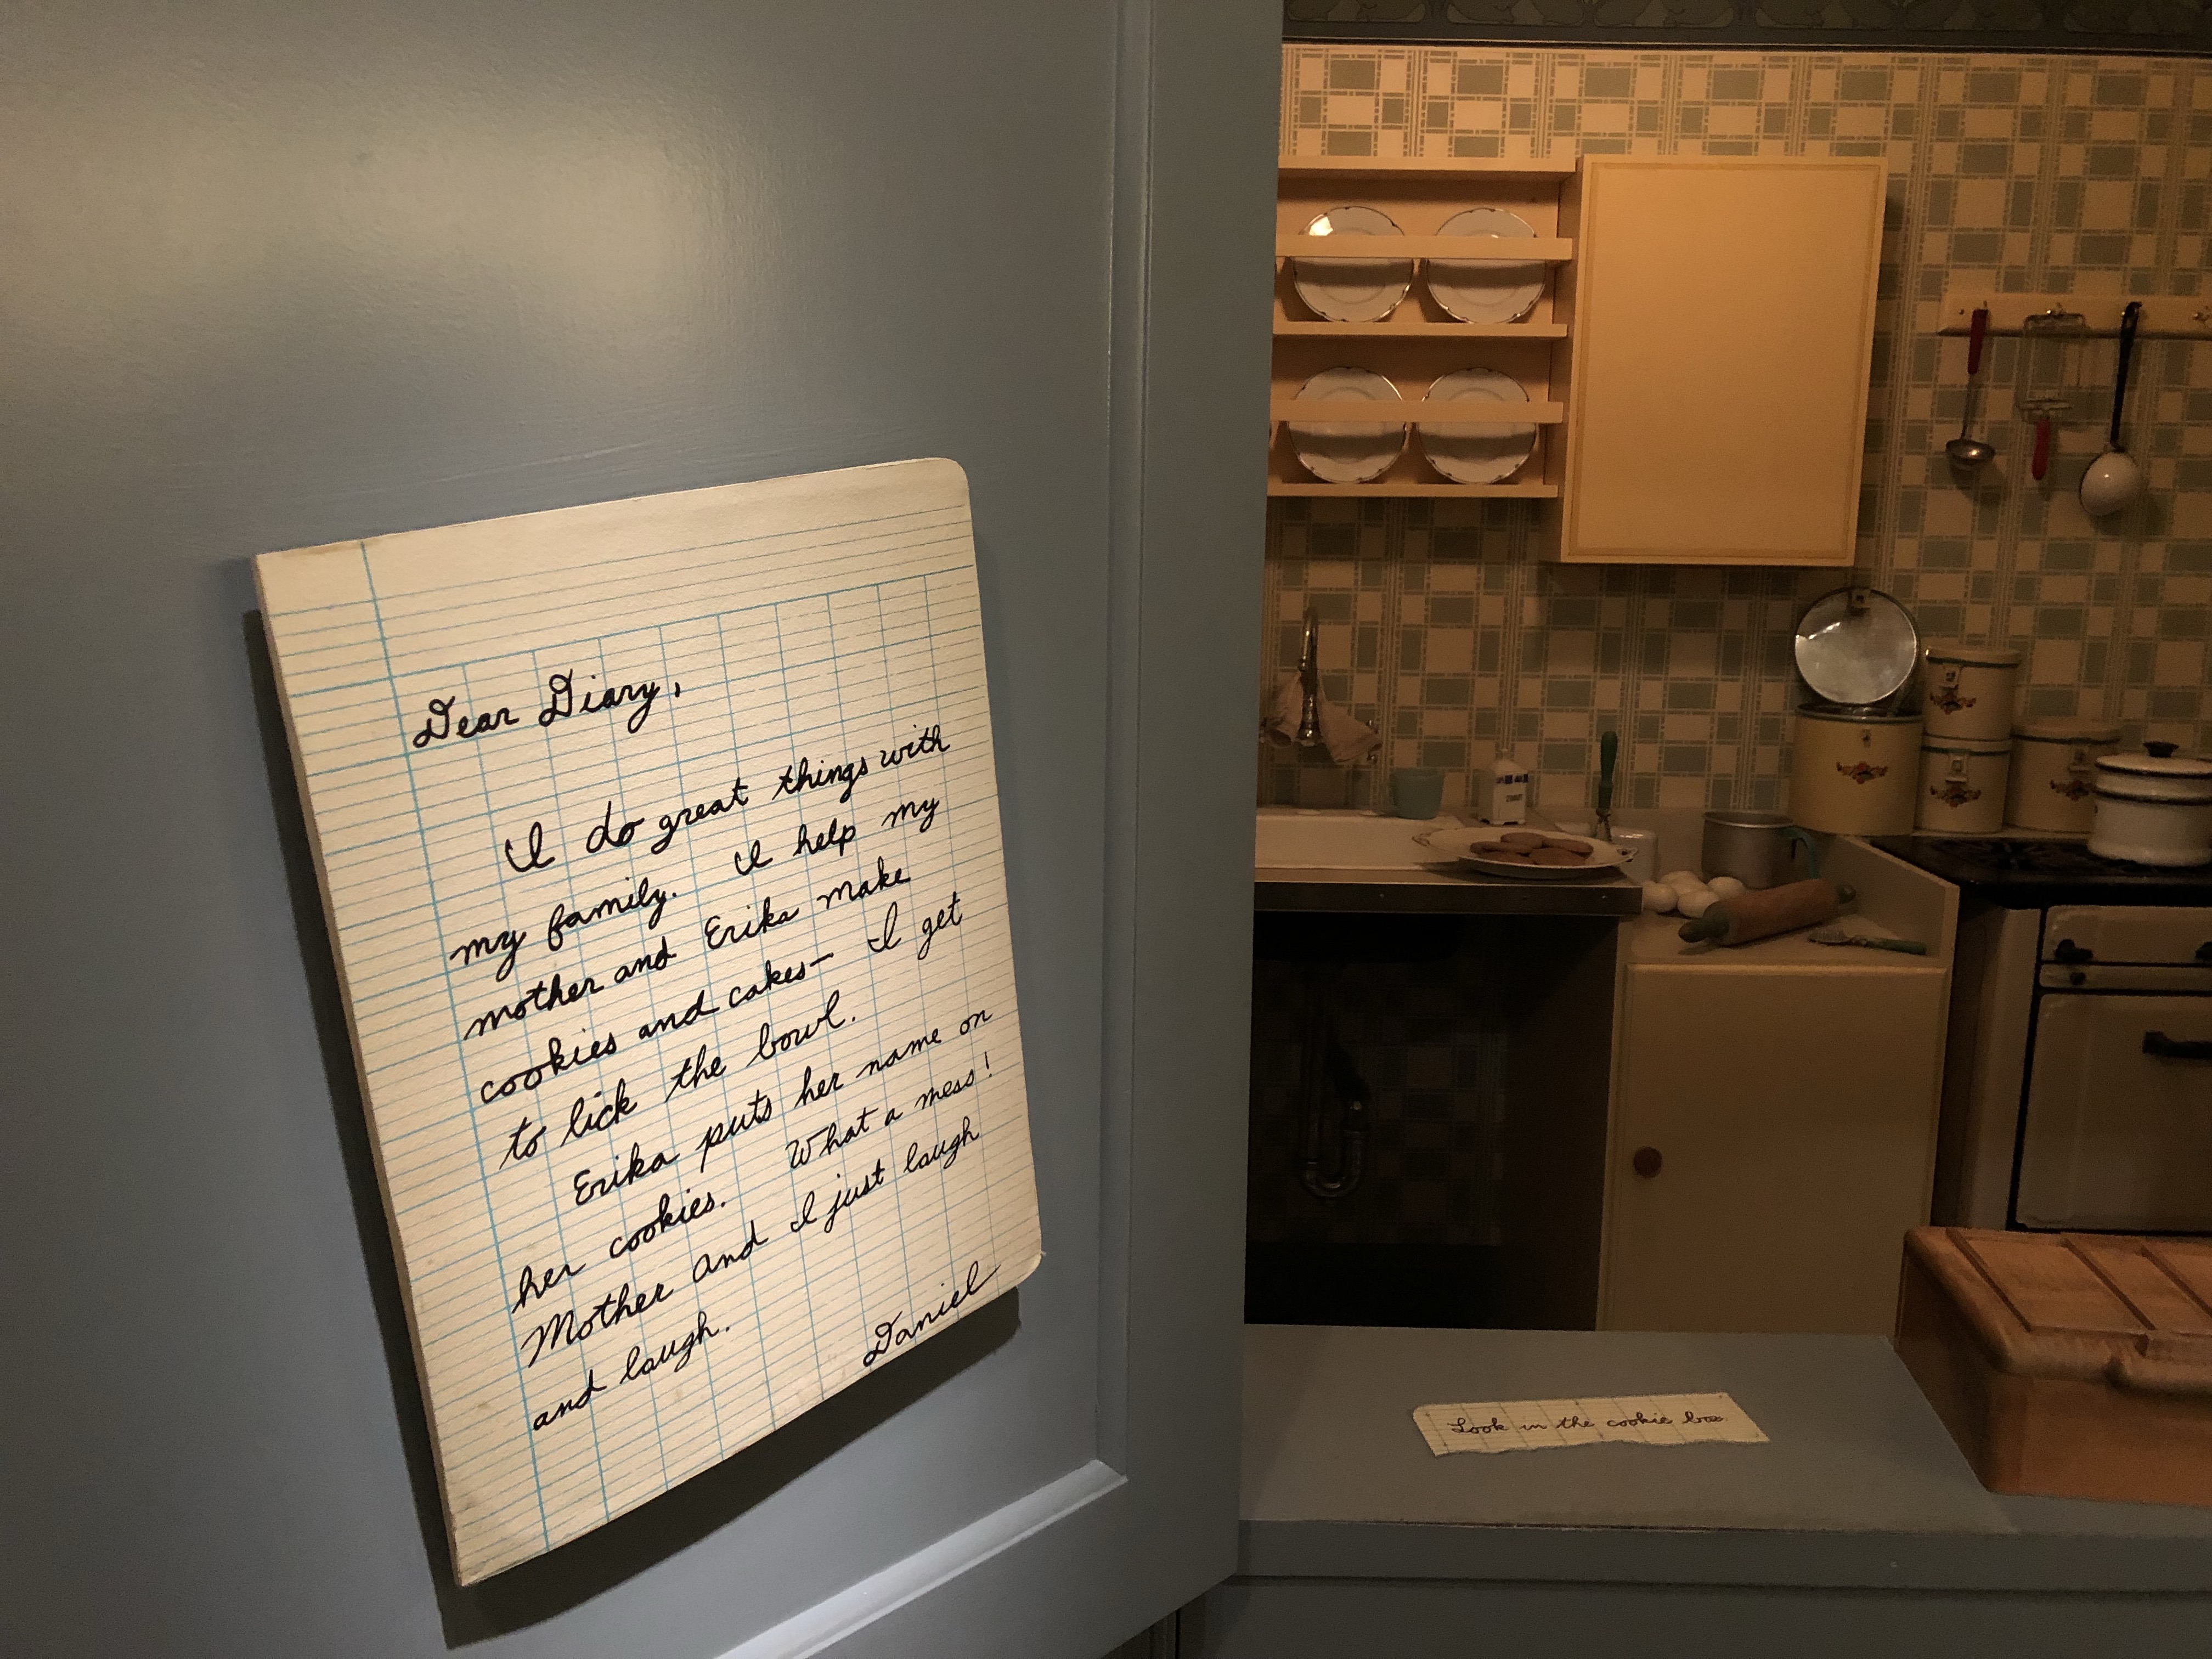 Dear Diary,
I do great things with
my family. I help my
mother and Erika make
cookies and cakes— I get
to lick the bowl.
Erika puts her name on
her cookies. What a mess!
Mother and I just laugh
and laugh.
Daniel
Look in the cookie box